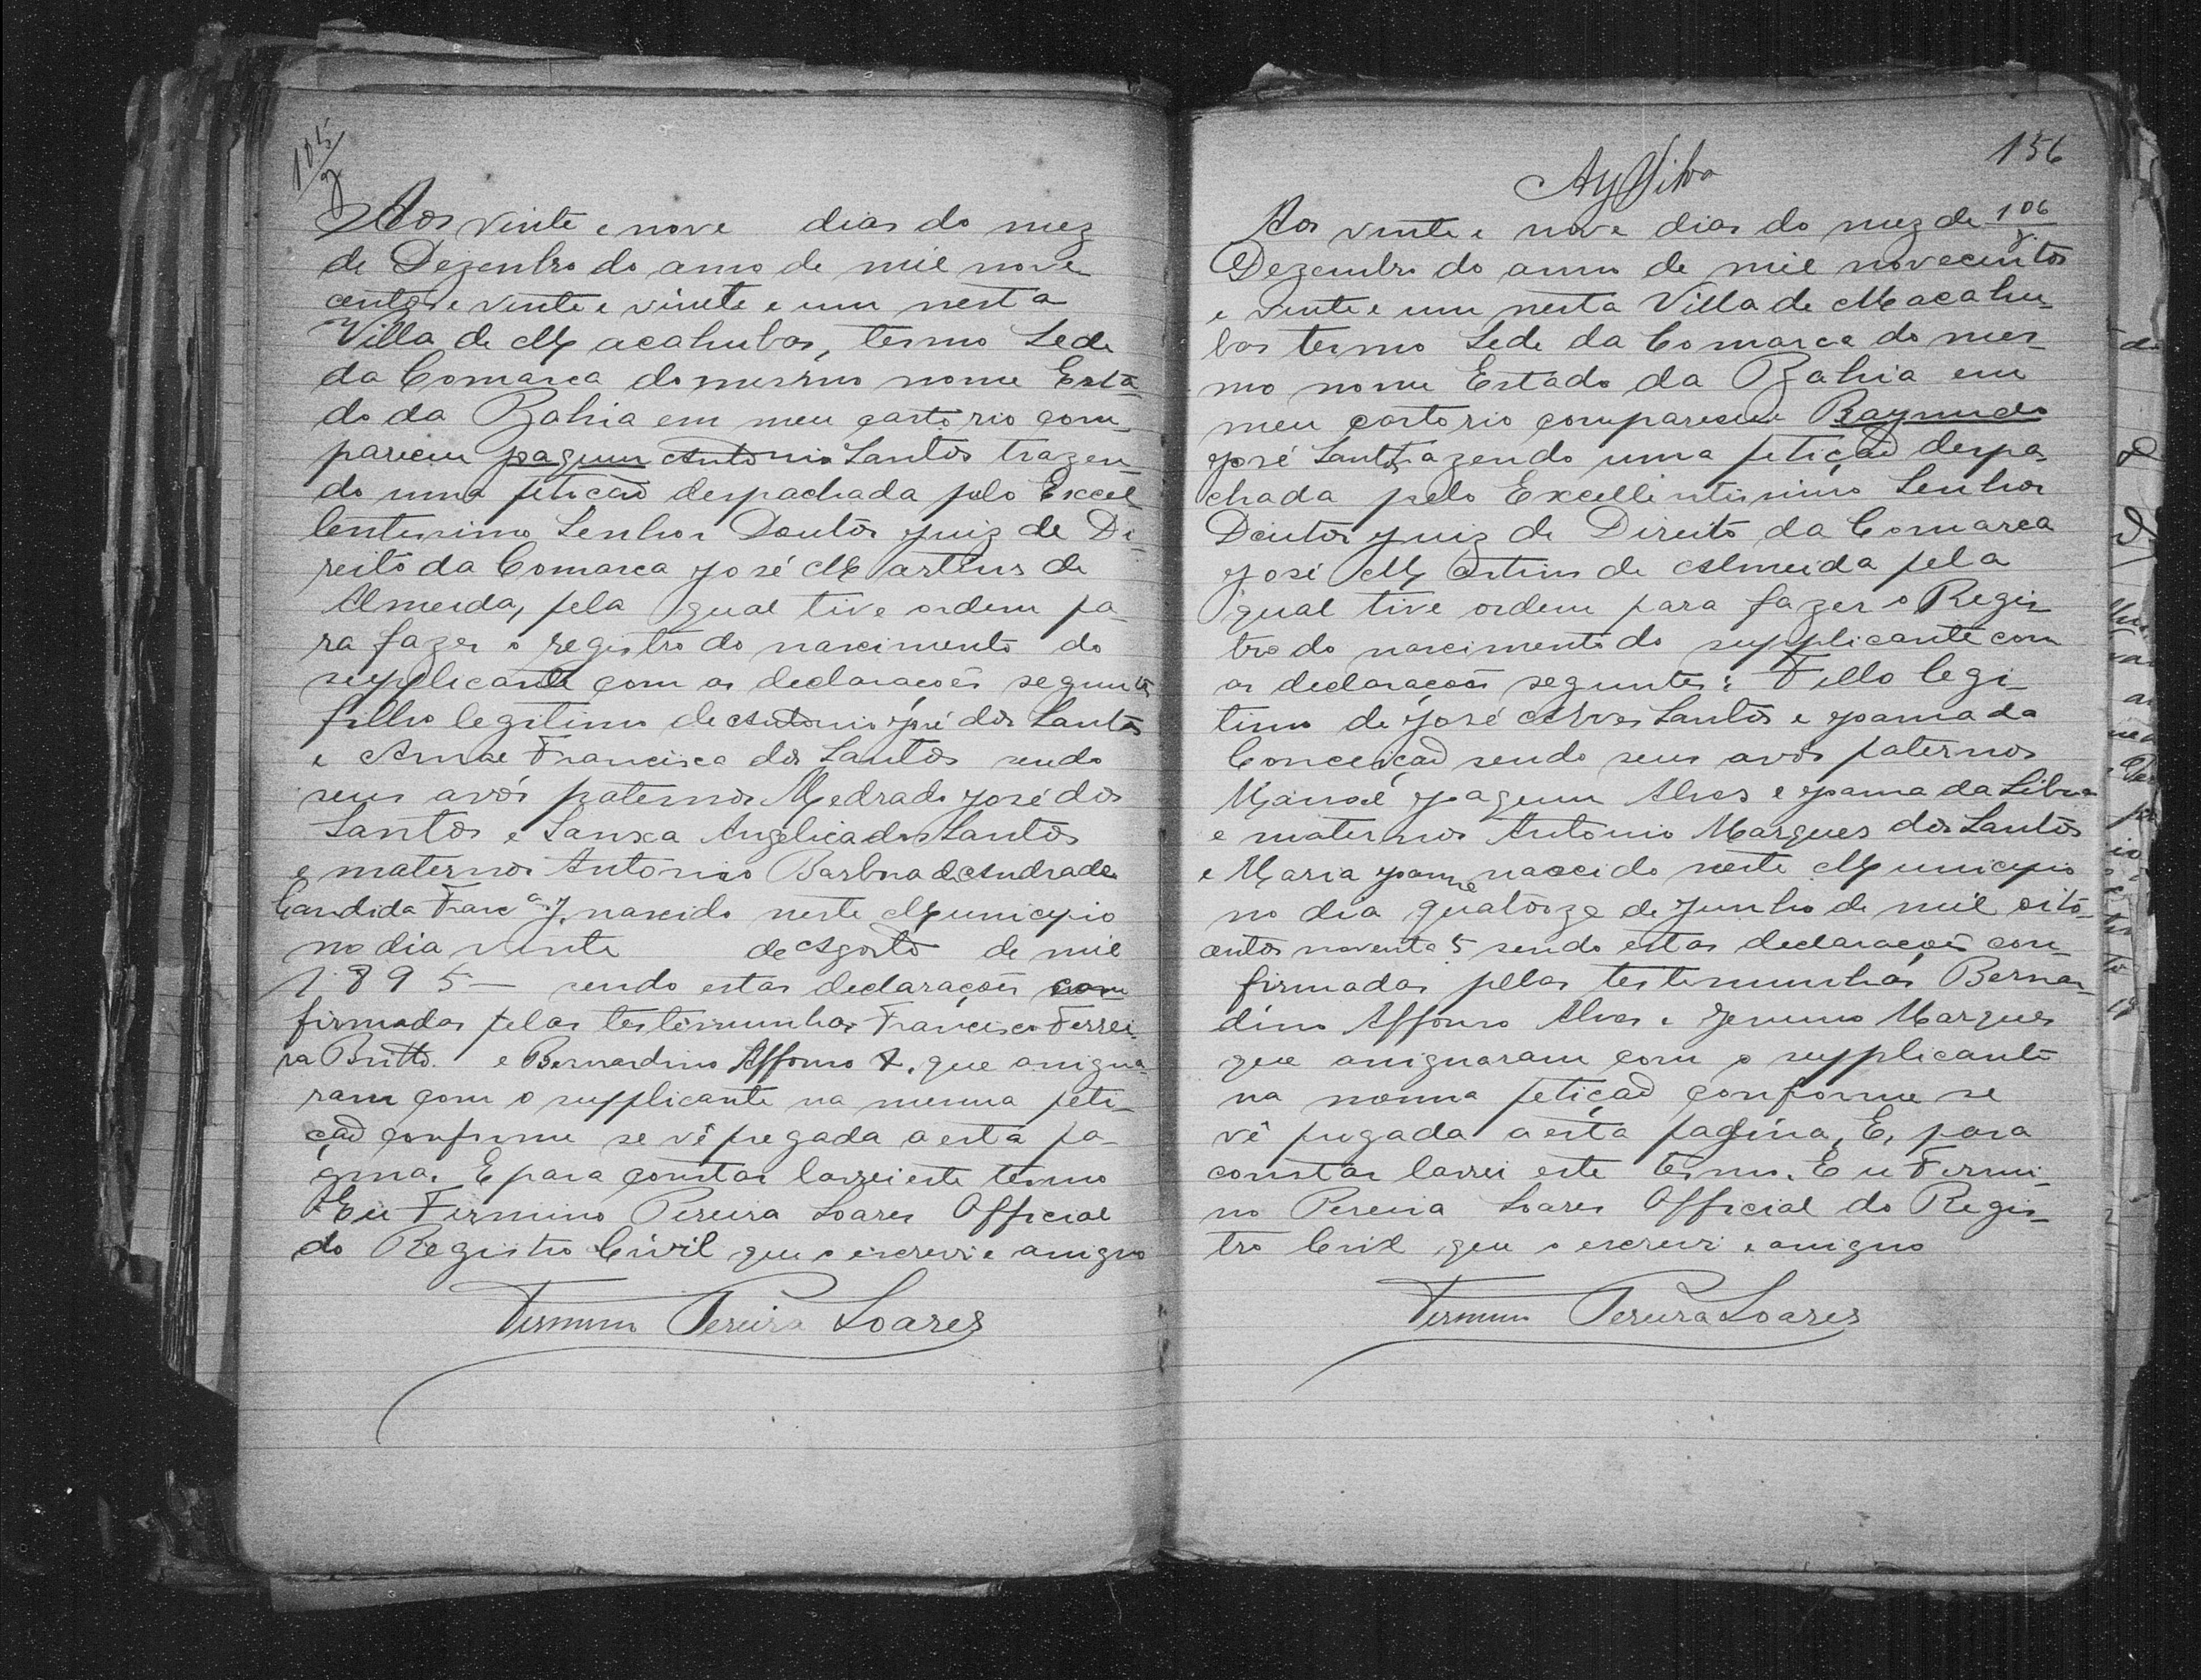 105
Aos vinte e nove dias do mez
de Dezembro do anno de mil nove
centos e vinte e vinte e um nesta
Villa de Macahubas, termo Sede
da Comarca do mesmo nome Esta-
do da Bahia em meu cartorio com-
pareceu Joaquim Antonio Santos trazen-
do uma petição despachada pelo Excel
lentissimo Senhor Doutor Juiz de Di-
reito da Comarca José Martins de
Almeida, pela qual tive ordem pa-
ra fazer o registro do nascimento do
supplicante com as declarações seguintes
filho legitimo de Antonio José dos Santos
e Anna Francisca dos Santos sendo
seus avós paternos Medrado José dos
Santos e Sanxa Angelica dos Santos
e maternos Antonio Barbosa de Andrade
Candida Franc.ª J. nascido neste Municipio
no dia vinte de Agosto de mil
1895 — sendo estas declarações con
firmadas pelas testemunhas Francisco Ferrei-
ra Britto. e Bernardino Affonso A. que assigna-
ram com o supplicante na mesma peti-
ção conforme se vê pregada a esta pa-
gina. E para constar lavrei este termo
Eu Firmino Pereira Soares Official
do Registro Civil que o escrevi e assigno
Firmino Pereira Soares
156
Ay Silva
106
Aos vinte e nove dias do mez de
Dezembro do anno de mil novecentos
e vinte e um nesta Villa de Macahu-
bas termo Sede da Comarca do mes-
mo nome Estado da Bahia em
meu cartorio compareceu Raymundo
José Santos trazendo uma petição despa-
chada pelo Excellentissimo Senhor
Doutor Juiz de Direito da Comarca
José Martins de Almeida pela
qual tive ordem para fazer o Regis-
tro do nascimento do supplicante com
as declarações seguintes: Fillo legi-
timo de José Alves Santos e Joana da
Conceição sendo seus avós paternos
Manoel Joaquim Alves e Joana da Silva
e maternos Antonio Marques dos Santos
e Maria Joanna nascido neste Municipio
no dia quatorze de Junho de mil oito-
centos noventa 5 sendo estas declarações con-
firmadas pellas testemunhas Bernar-
dino Affonso Alves e Jenuino Marques
que assignaram com o supplicante
na mesma petição conforme se
vê pregada a esta pagina, E, para
constar lavrei este termo. Eu Firmi-
no Pereira Soares Official do Regis-
tro Civil que o escrevi e assigno
Firmino Pereira Soares